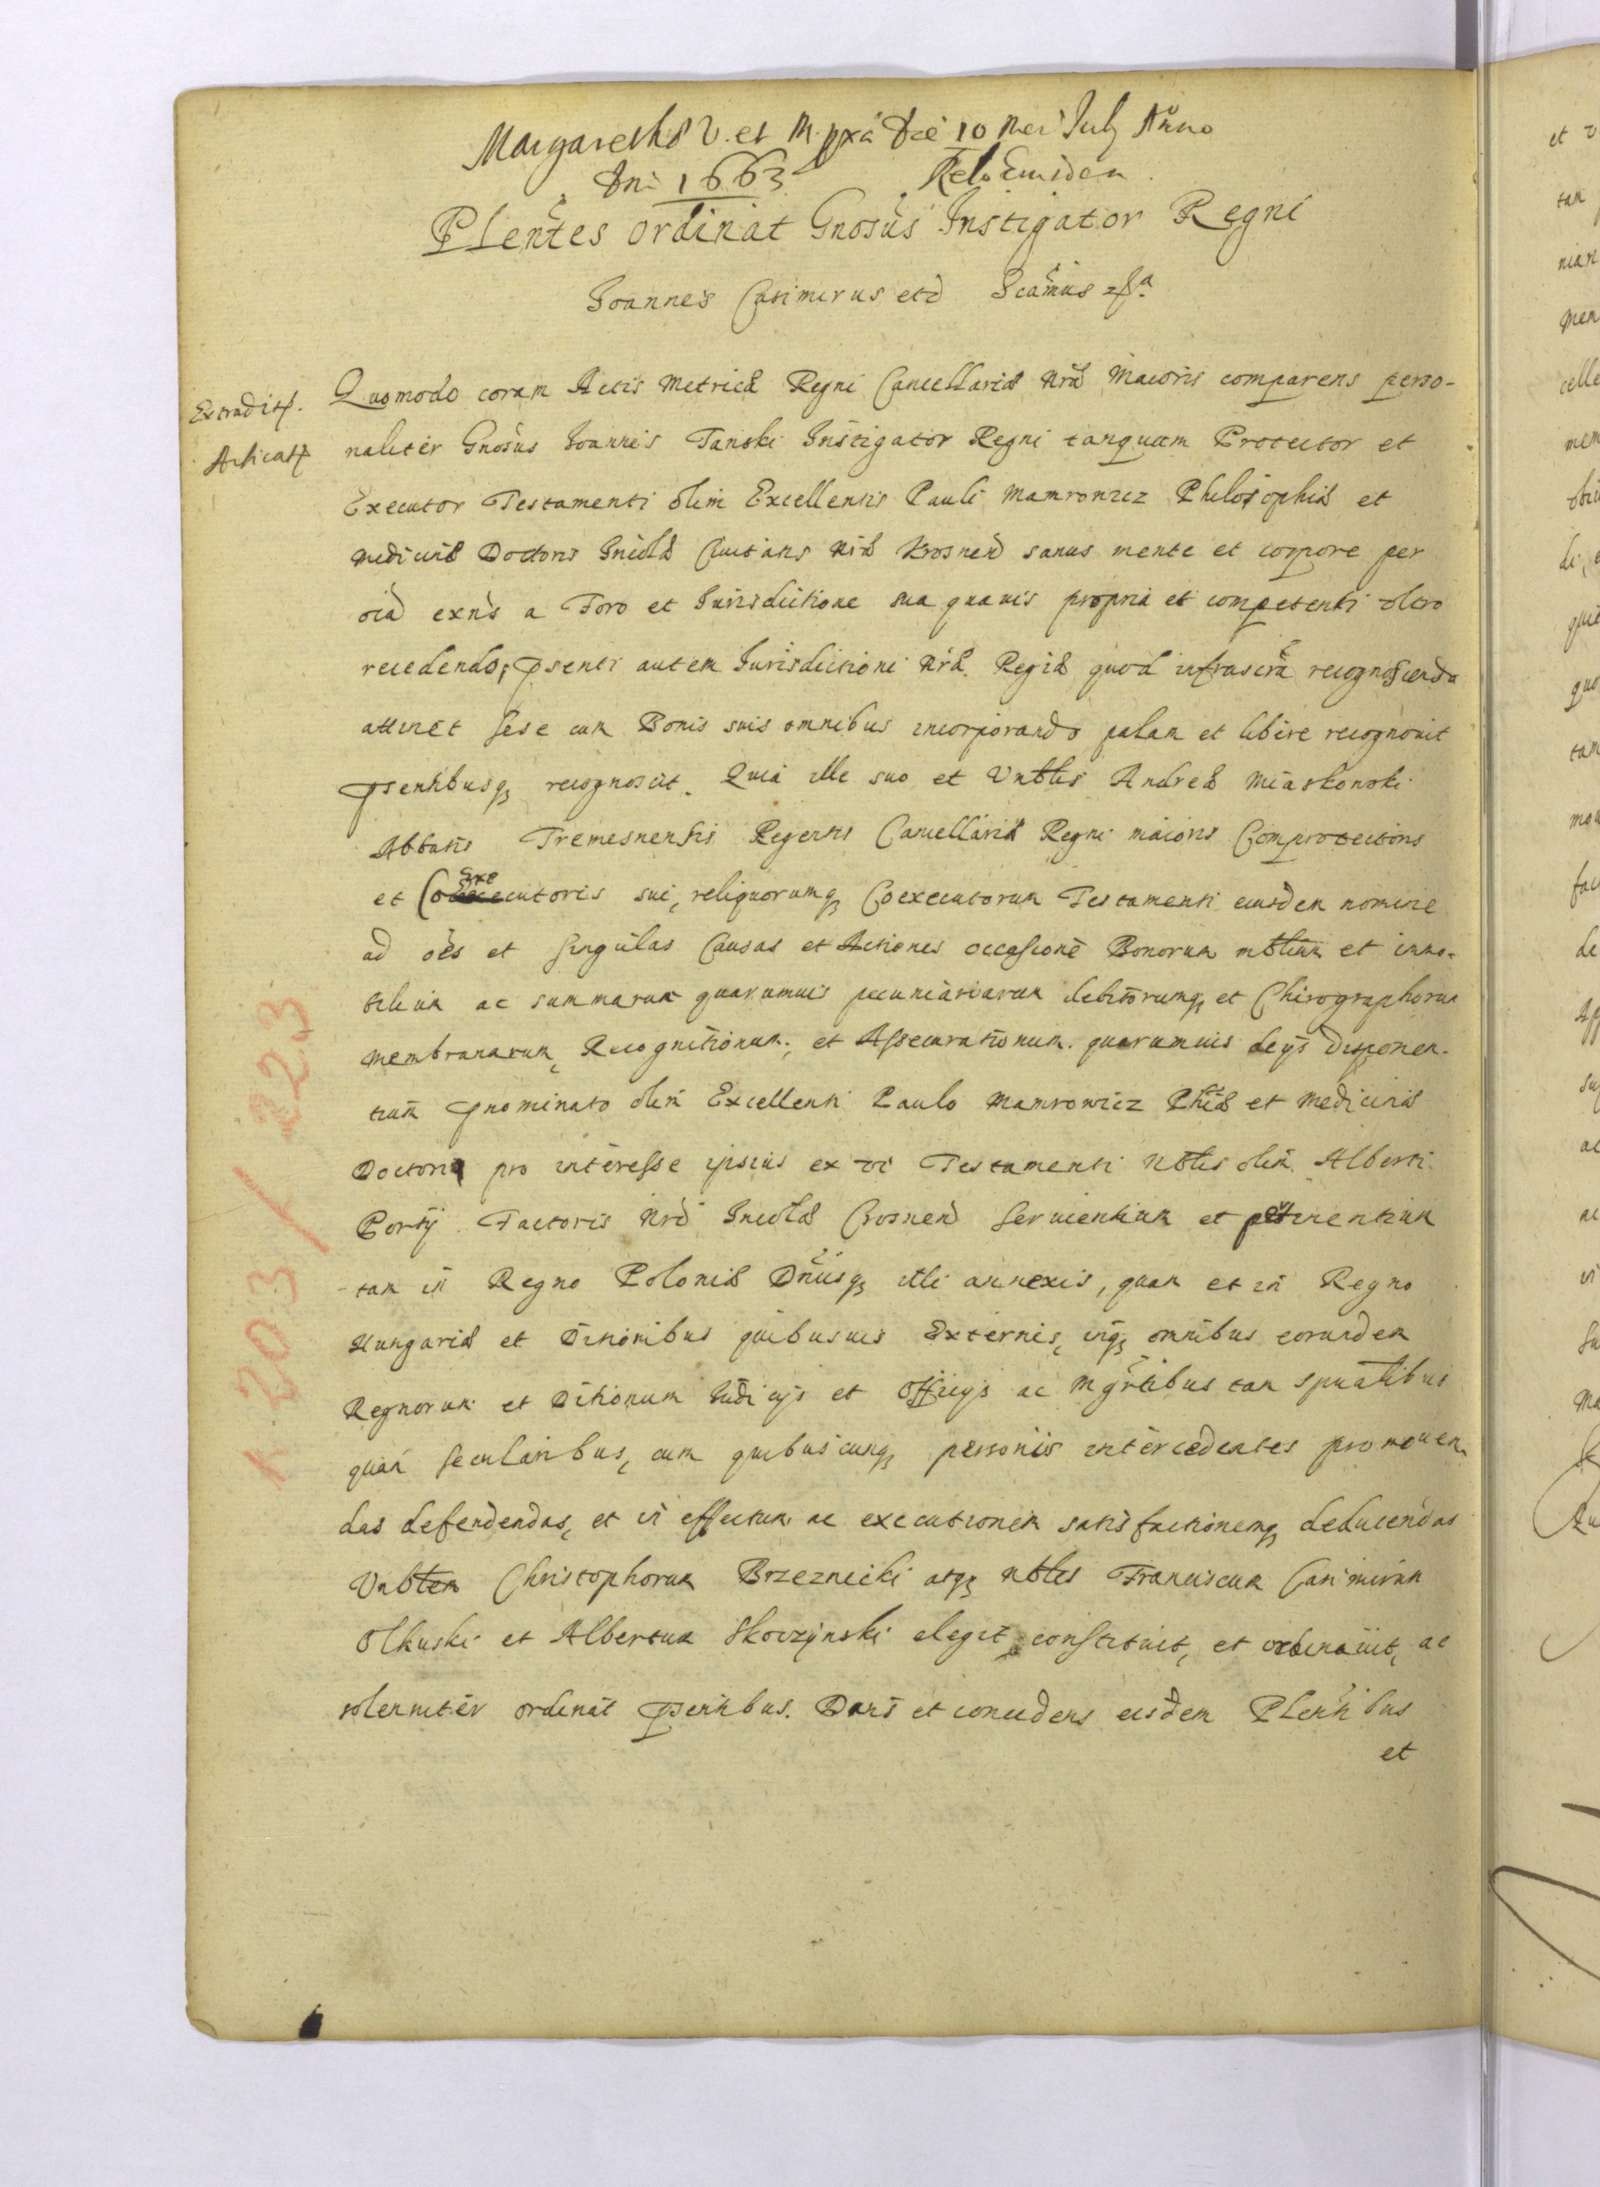 Margarethæ V. et M. pxa Die 10 Mei July Anno
Dni 1663 Rela Eiusdem
Plentes ordinat Gnosus Instigator Regni
Joannes Casimirus etc Scamus
Extradit. Quomodo coram Actis Metricæ Regni Cancellariæ Nræ Maioris comparens perso-
Acticat naliter Gnosus Joannes Tanski Instigator Regni tanquam Protector et
Executor Testamenti olim Excellentis Pauli Mamrowicz Philosophiæ et
Medicinæ Doctoris Incolæ Ciuitatis Nræ Krosnen sanus mente et corpore per
oia exns a Foro et Jurisdictione sua quauis propria et competenti ultro
recedendo, psenti autem Jurisdictioni Nræ Regiæ quod infrascra recognoscenda
attinet sese cum Bonis suis omnibus incorporando palam et libere recognouit
psentibusq recognoscit. Quia ille suo et Vnblis Andreæ Miaskowski
Abbatis Tremesnensis Regentis Cancellariæ Regni maioris Comprotectoris
et Coexecutoris sui, reliquorumq Coexecutorum Testamenti eiusdem nomine
ad oes et singulas Causas et Actiones occasione Bonorum mblium et immo-
bilium ac summarum quarumuis pecuniariarum debitorumq et Chirographorum
Membranarum, Recognitionum, et Assecurationum quarumuis de ijs disponen-
tium pnominato olim Excellenti Paulo Mamrowicz Phiæ et Medicinæ
Doctori pro interesse ipsius ex vi Testamenti Nblis olim Alberti
Portij Factoris Nri Incolæ Crosnen seruientium et pertinentium
tam in Regno Poloniæ Dnysq illi annexis, quam et in Regno
Hungariæ et Ditionibus quibusuis Externis, inq omnibus eorundem
Regnorum et Ditionum Judicijs et Officijs ac Mgrtibus tam spualibus
quam secularibus, cum quibuscunq personis intercedentes promouen
das defendendas, et in effectum ac executionem satisfactionemq deducendas
Vnblem Christophorum Brzeznicki atq Nbles Franciscum Casimirum
Olkuski et Albertum Skorzynski elegit constituit, et ordinauit, ac
solenniter ordinat psentibus. Dans et concedens eisdem Plentibus
et
K 203 / 223